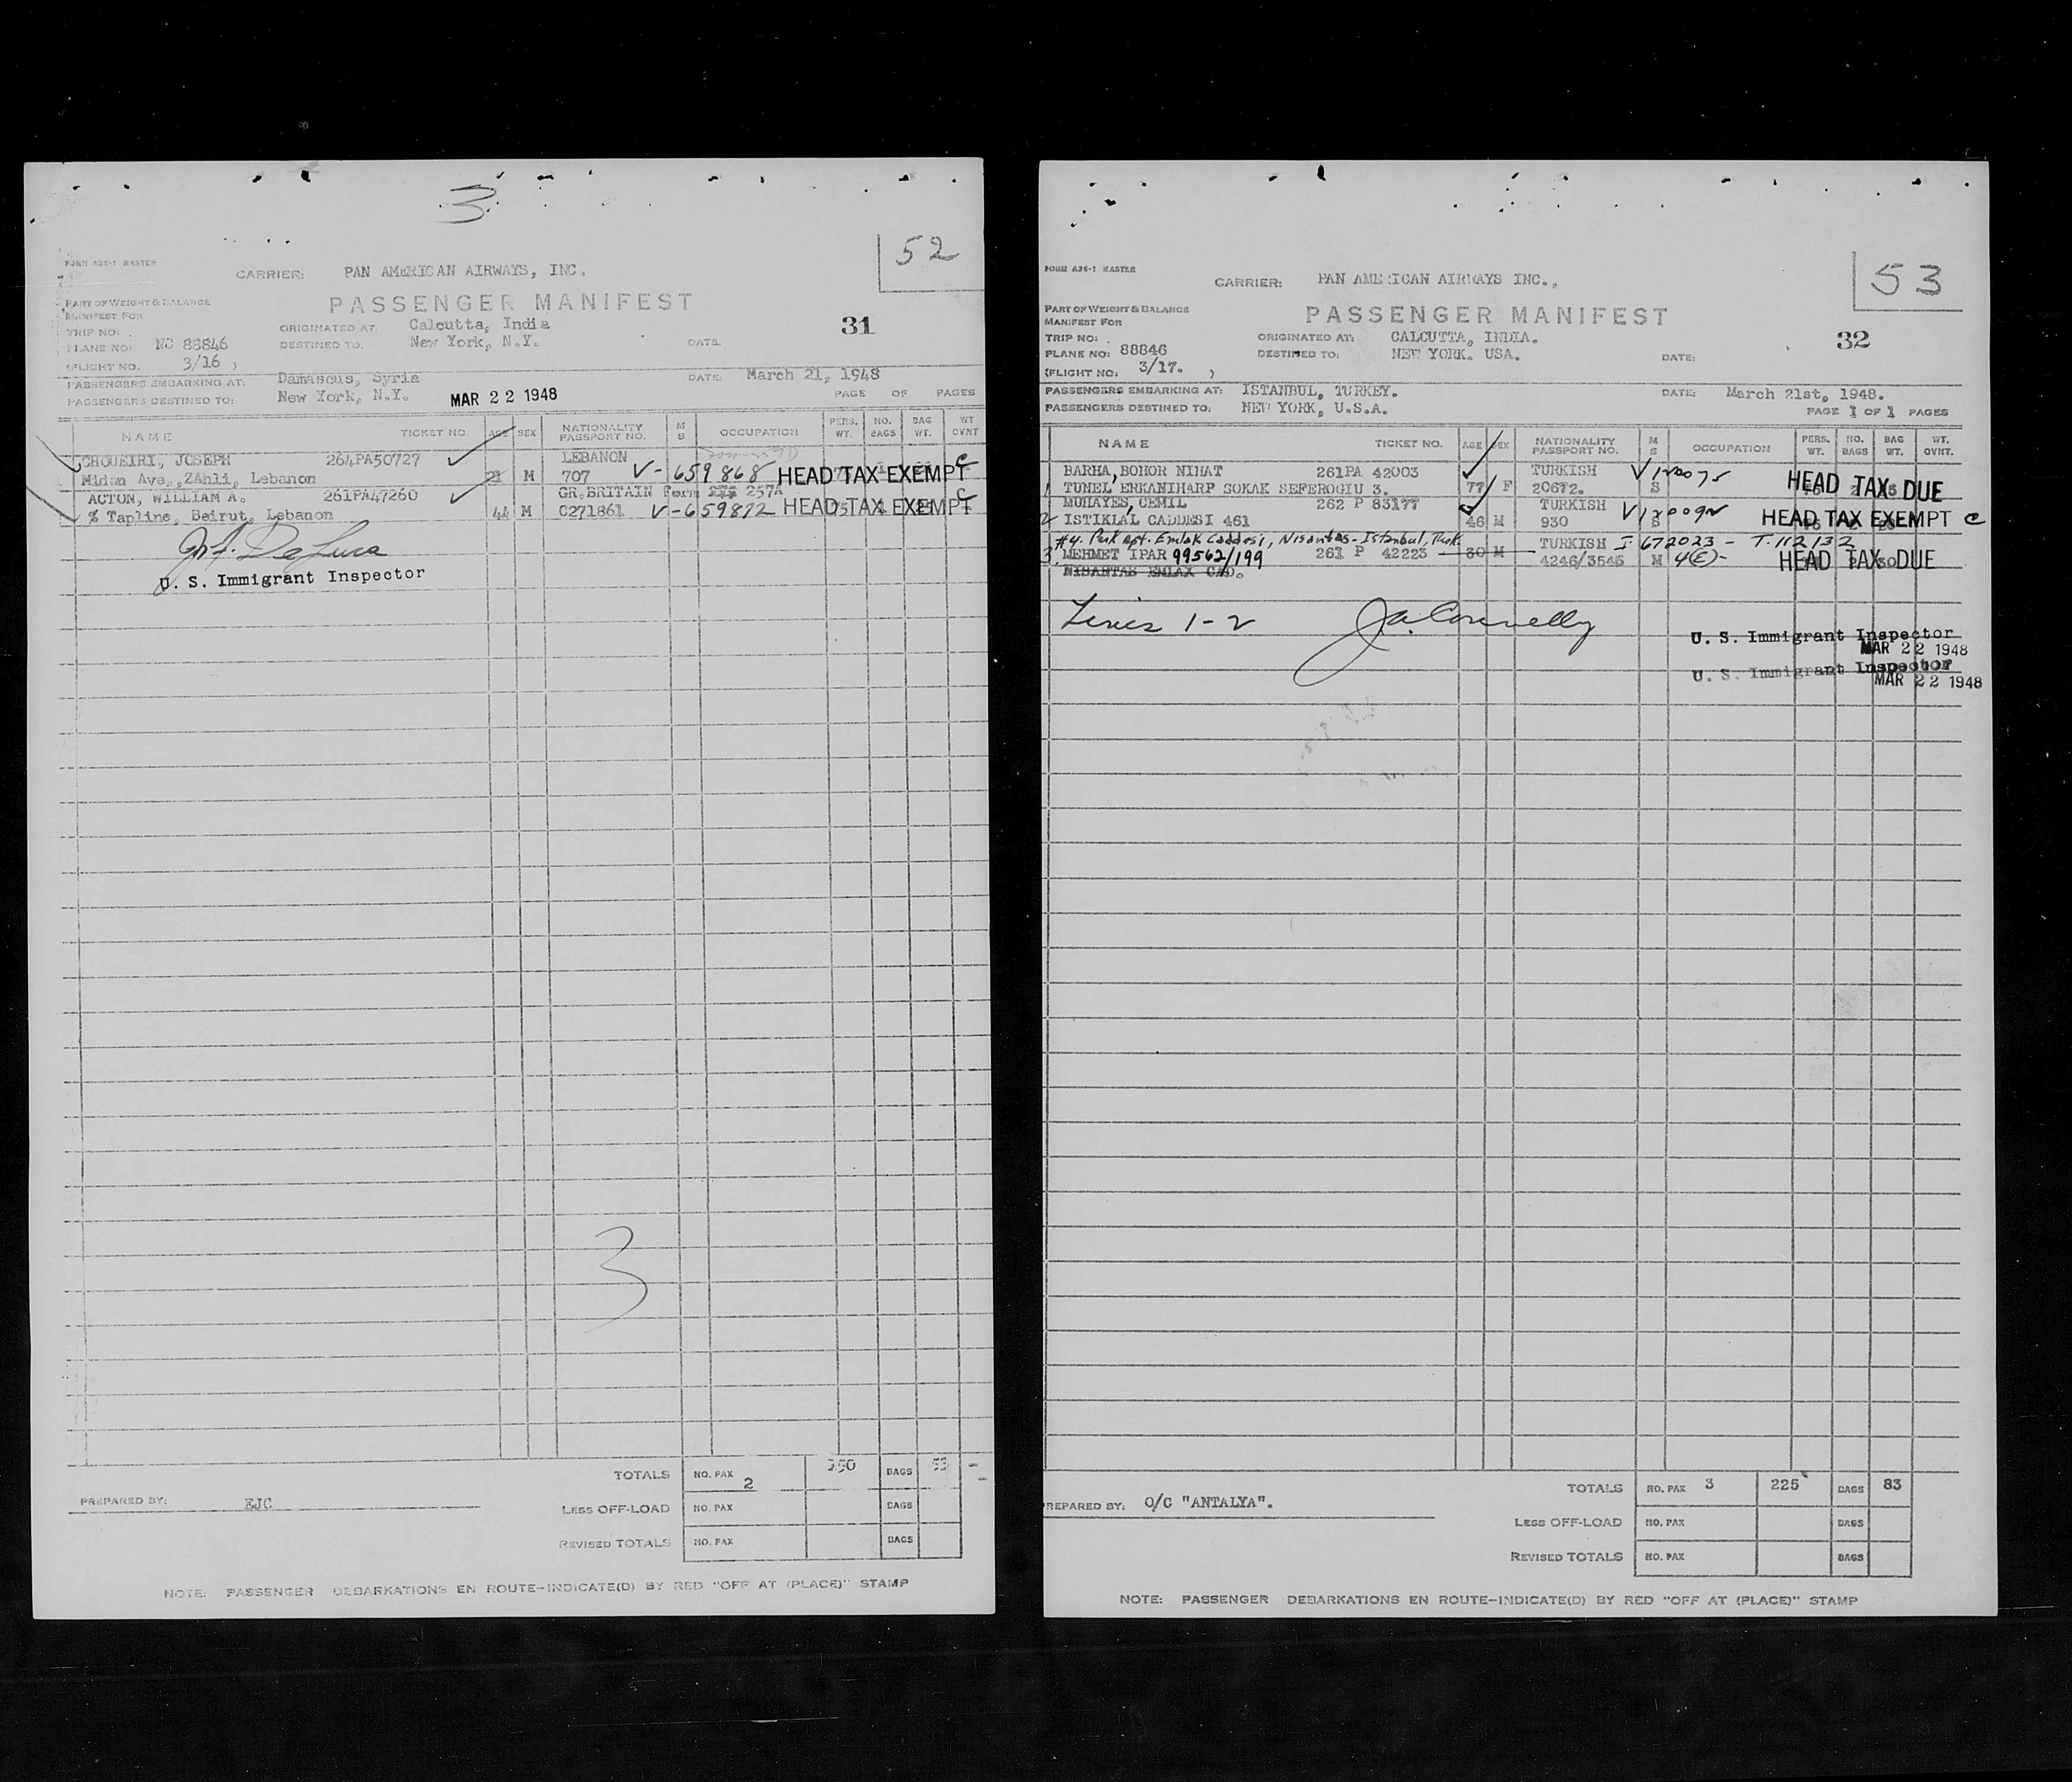 3
52
FORM A36-1 MASTER
CARRIER: PAN AMERICAN AIRWAYS, INC.
PART OF WEIGHT & BALANCE
MANIFEST FOR
PASSENGER MANIFEST
31
TRIP NO:
ORIGINATED AT: Calcutta, India
PLANE NO: NC 88846
DESTINED TO: New York, N.Y.
DATE:
(FLIGHT NO. 3/16 )
PASSENGERS EMBARKING AT: Damascus, Syria
DATE: March 21, 1948
PASSENGERS DESTINED TO: New York, N.Y.
MAR 22 1948
PAGE OF PAGES
NAME TICKET NO. AGE SEX NATIONALITY PASSPORT NO. M S OCCUPATION PERS. WT. NO. BAGS BAG WT. WT OVNT
CHOUEIRI, JOSEPH 264PA50727 LEBANON
Midan Ave., ZAhli, Lebanon 21 M 707 V-659868 HEAD TAX EXEMPT C
ACTON, WILLIAM A. 261PA47260 GR.BRITAIN Form 257A
% Tapline, Beirut, Lebanon 44 M C271861 V-659872 HEAD TAX EXEMPT C
De Luca
U. S. Immigrant Inspector
3
TOTALS NO. PAX 2 BAGS 53
PREPARED BY: EJC
LESS OFF-LOAD NO. PAX BAGS
REVISED TOTALS NO. PAX BAGS
NOTE: PASSENGER DEBARKATIONS EN ROUTE-INDICATE(D) BY RED "OFF AT (PLACE)" STAMP
53
FORM A36-1 MASTER
CARRIER: PAN AMERICAN AIRWAYS INC.,
PART OF WEIGHT & BALANCE
MANIFEST FOR
PASSENGER MANIFEST
32
TRIP NO:
ORIGINATED AT: CALCUTTA, INDIA.
PLANE NO: 88846
DESTINED TO: NEW YORK. USA.
DATE:
(FLIGHT NO: 3/17. )
PASSENGERS EMBARKING AT: ISTANBUL, TURKEY.
DATE: March 21st, 1948.
PASSENGERS DESTINED TO: NEW YORK, U.S.A.
PAGE 1 OF 1 PAGES
NAME TICKET NO. AGE SEX NATIONALITY PASSPORT NO. M S OCCUPATION PERS. WT. NO. BAGS BAG WT. WT. OVNT.
BARHA, BOHOR NIHAT 261PA 42003 TURKISH V120075
1 TUNEL ERKANIHARP SOKAK SEFEROGIU 3. 77 F 20672. S HEAD TAX DUE
MUHAYES, CEMIL 262 P 83177 TURKISH
2 ISTIKLAL CADDESI 461 46 M 930 S HEAD TAX EXEMPT C
#4. Park Apt. Emlak Caddesi, Nisantas-Istanbul, Turk.
TURKISH I 672023 - T.112132
3. MEHMET IPAR 99562/199 261 P 42223 30 M 4246/3545 M 4(E)- HEAD TAX DUE
NISANTAS EMLAK CAD.
Lines 1-2 J.A. Connelly
U. S. Immigrant Inspector
MAR 22 1948
U. S. Immigrant Inspector
MAR 22 1948
TOTALS NO. PAX 3 225 BAGS 83
PREPARED BY: O/C "ANTALYA".
LESS OFF-LOAD NO. PAX BAGS
REVISED TOTALS NO. PAX BAGS
NOTE: PASSENGER DEBARKATIONS EN ROUTE-INDICATE(D) BY RED "OFF AT (PLACE)" STAMP